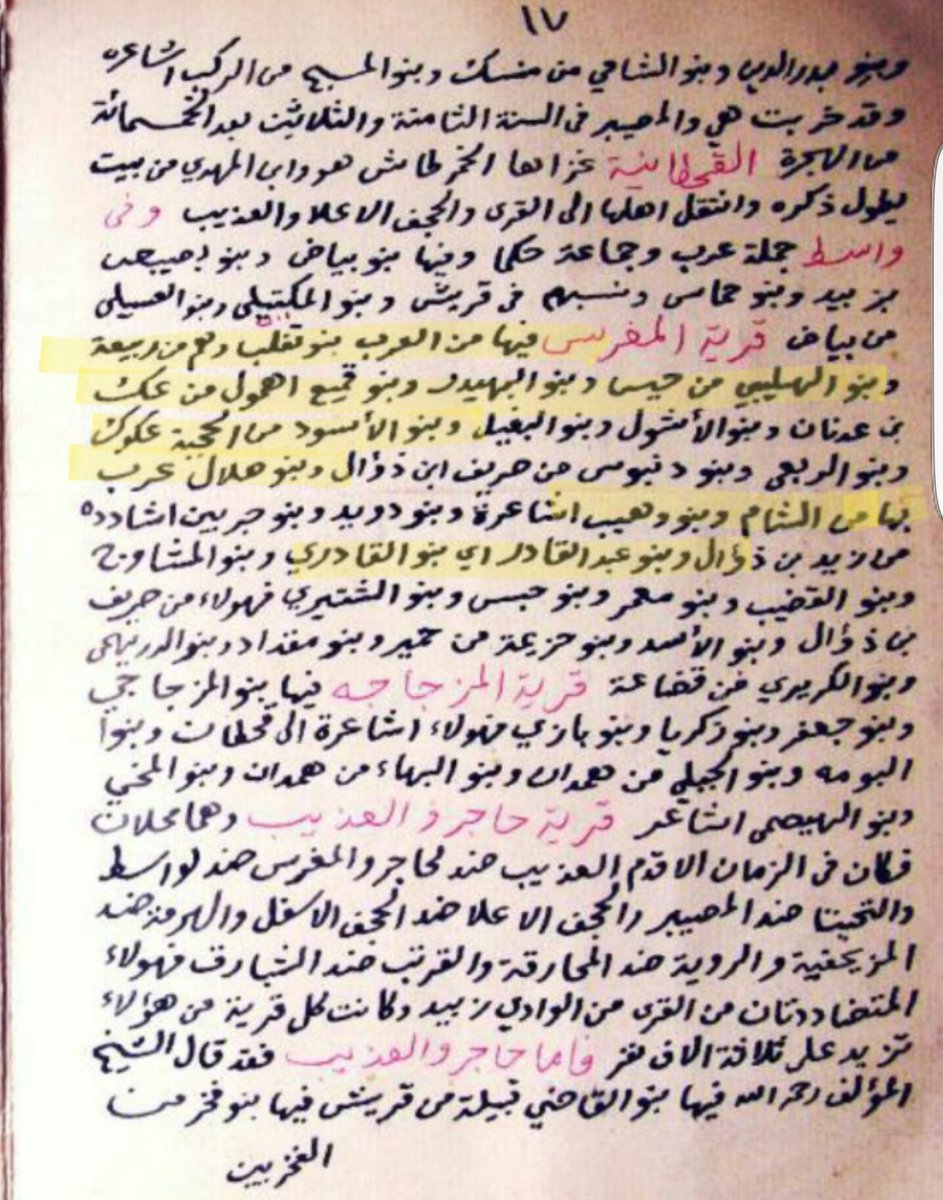 ١٧
وبنو بدر الدين وبنو الشامي من منسك وبنو المسبح من الركب اشاعره
وقد خربت هي والمصبير فى السنة الثامنة والثلاثين بعد الخمسمائة
من الهجرة القحطانية غزاها الخمرطاش هو وابن المهدي من بيت
يطول ذكره وانتقل اهلها الى القرى والحجف الاعلا والعذيب وفى
واسط جملة عرب وجماعة حكما وفيها بنو بياض وبنو
بزبيد وبنو حماس ونسبهم فى قريش وبنو المكتبلى وبنو العسيلى
من بياض قرية المغرس فيها من العرب بنو تغلب وهم من ربيعة
وبنو الهليبي من حيس وبنو البهيدر وبنو قميع اهمول من عك
بن عدنان وبنو الأشول وبنو البغيل وبنو الأسود من الحجبة عكوك
وبنو الربعي وبنو دنبوس من صريف ابن ذؤال وبنو هلال عرب
بها من الشام وبنو وهيب اشاعرة وبنو دويد وبنو جربين اشادده
من زيد بن ذؤال وبنو عبد القادر اي بنو القادري وبنو المشاوح
وبنو القضيب وبنو معمر وبنو حبس وبنو الشتيري فهولاء من صريف
بن ذؤال وبنو الأسد وبنو حزيمة من حمير وبنو مقداد وبنو الدريهمى
وبنو الكريري من قضاعة قرية المزجاجه فيها بنو المزجاجي
وبنو جعفر وبنو زكريا وبنو بازي فهولاء اشاعرة الى قحطان وبنوا
البومه وبنو الجبلي من همدان وبنو البهاء من همدان وبنو المخي
وبنو الهيصمى اشاعر قرية حاجر والعذيب وهما محلان
فكان فى الزمان الاقدم العذيب ضد لحاجر والمغرس ضد لواسط
والتحيتا ضد المصبير والحجف الاعلا ضد الحجف الاسفل والهرمة ضد
المزيحفية والروية ضد المحارقة والقرتب ضد الشبارق فهولاء
المتضاددتان من القرى من الوادي زبيد وكانت كل قرية من هؤلاء
تزيد على ثلاثة الاف نفر فاما حاجر والعذيب فقد قال الشيخ
المؤلف رحمه الله فيها بنو القاضي قبيلة من قريش فيها بنو فخر من
الفخربين